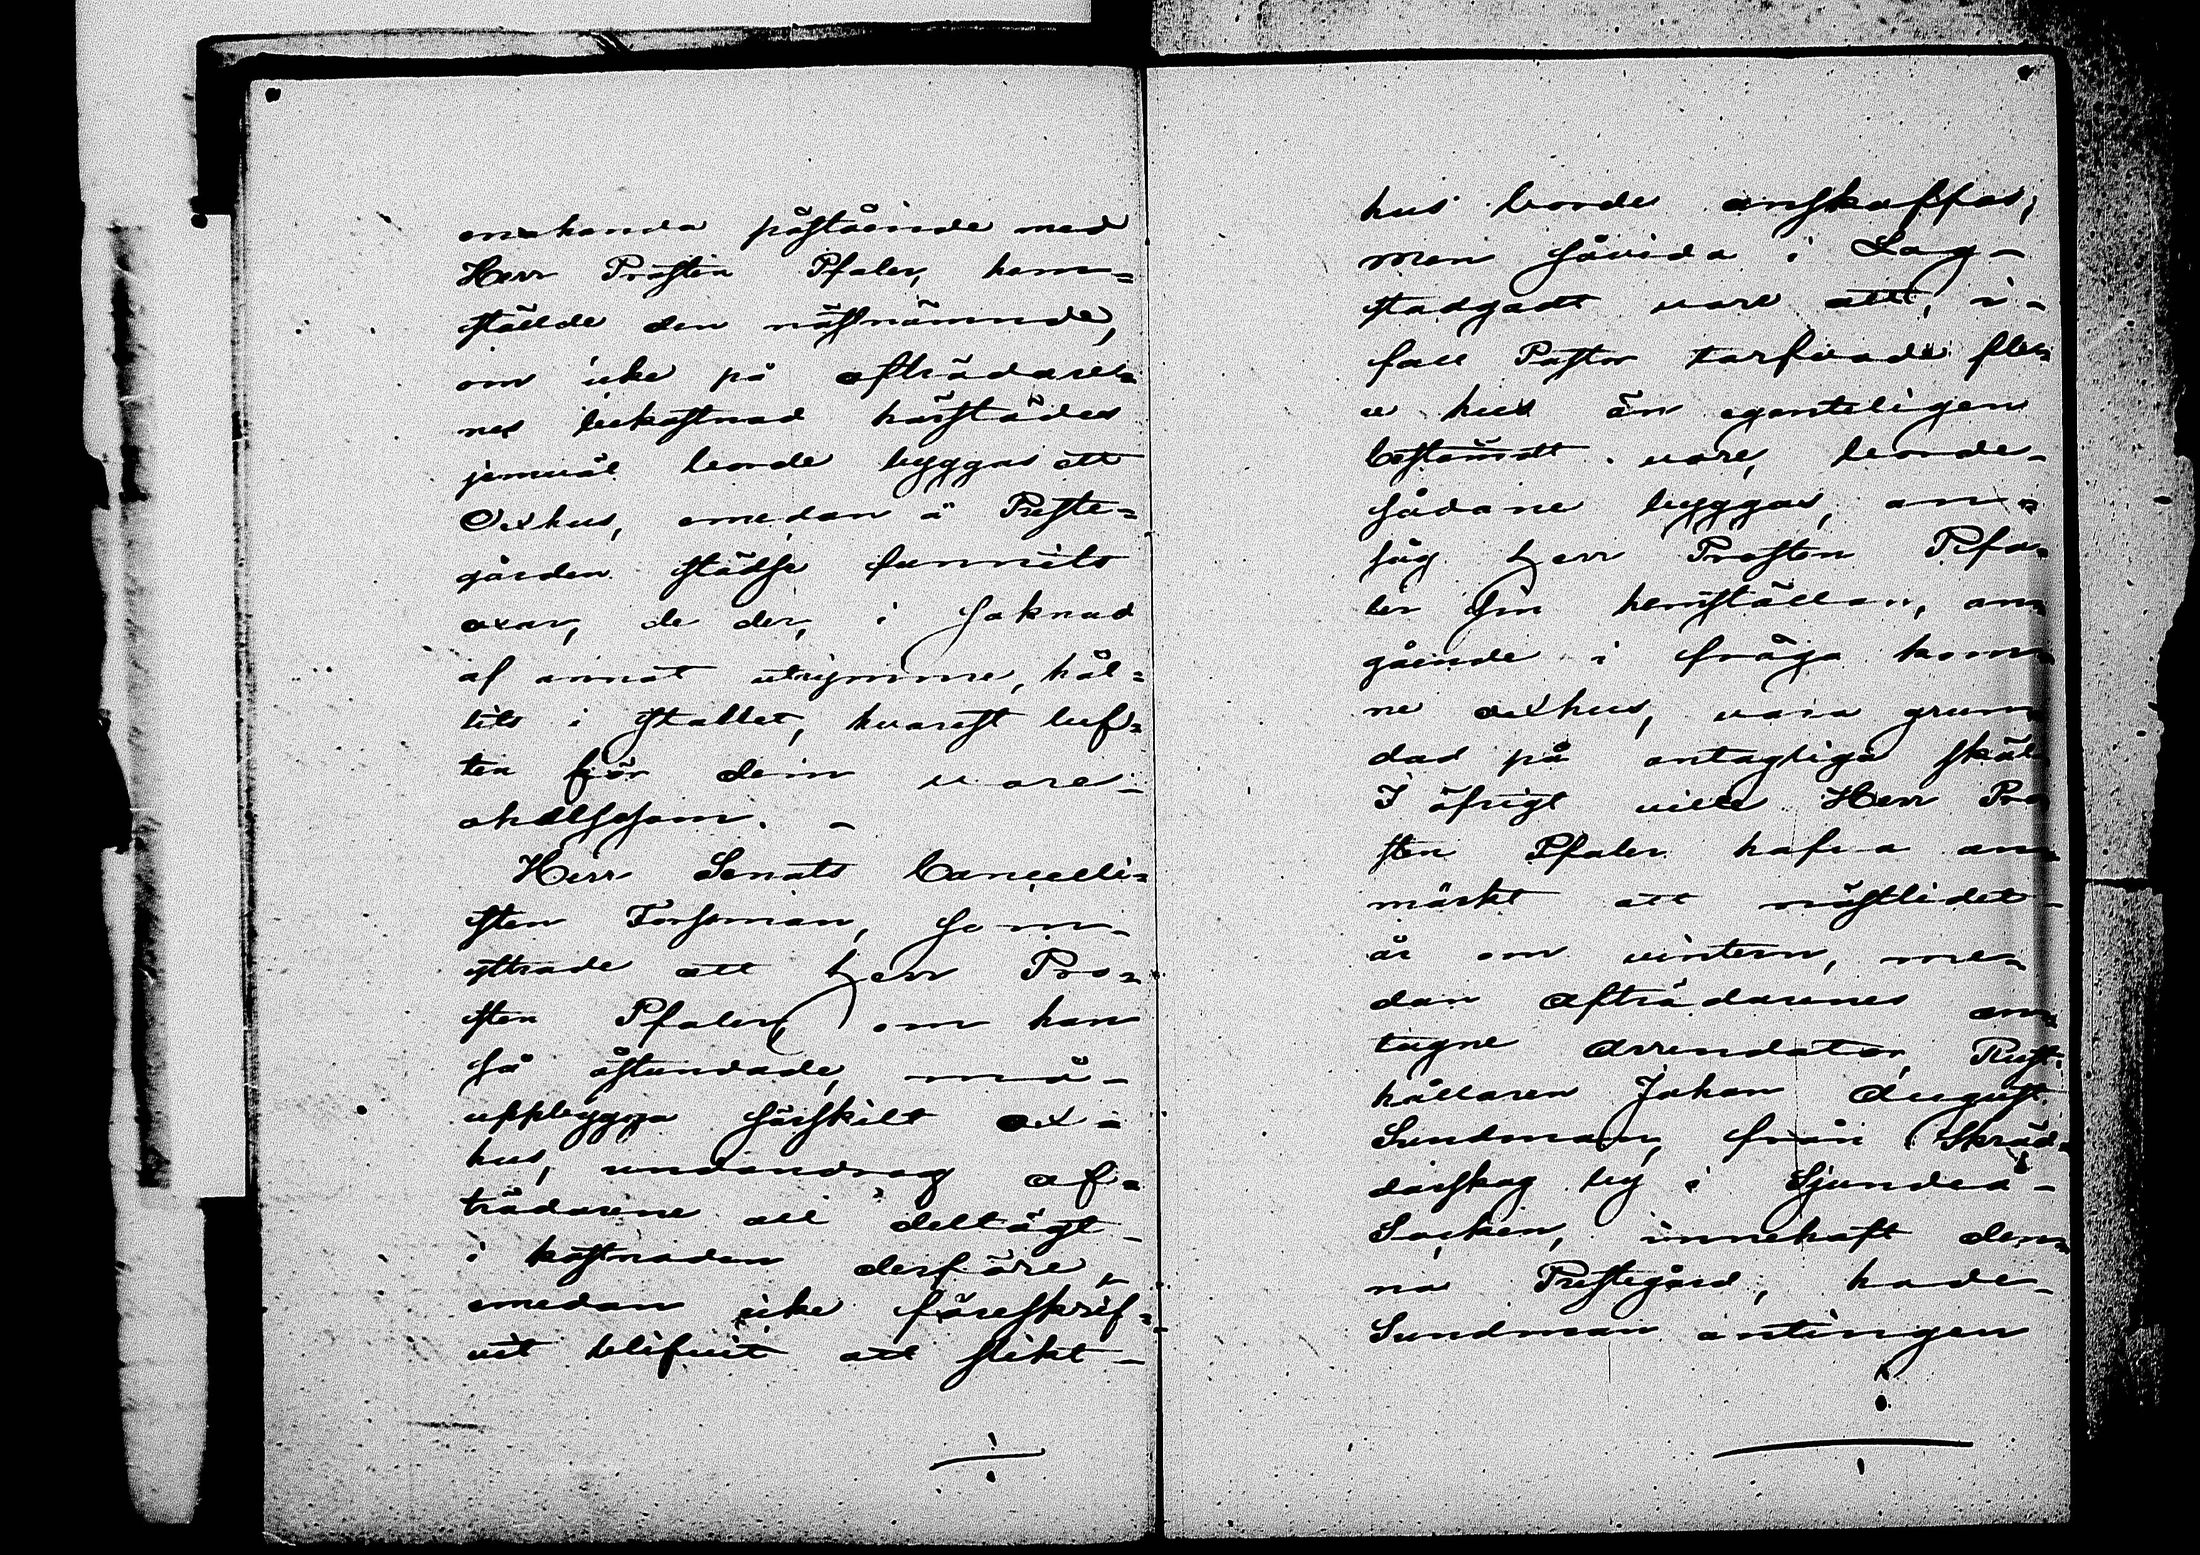 enahanda påstående med
Herr Prosten Pfaler, hem=
stälde den nästnämnde,
om icke på afträdarer=
nes bekostnad härstädes
jemväl borde byggas ett
Oxhus, emedan å Preste=
gården städse funnits
oxar, de der, i saknad
af annat utrymme, hål=
lits i stallet, hvarest luf=
ten för dem vore-
ohelsosam. -
Herr Senats Cancelli=
sten Forsman, som-
yttrade att Herr Pro=
sten Pfaler, om han
så åstundade, må-
uppbygga särskilt ox-
hus, undandrog af=
trädarne all deltägt-
i kostnaden derföre,
emedan icke föreskrif=
vit blifvit att slikt-
hus borde anskaffas;
men såvida i Lag-
stadgadt vore att, i-
fall Pastor tarfvade fler=
a hus än egenteligen
bestämdt vore, borde-
sådane byggas, an=
såg Herr Prosten Pfa=
ler sin hemställan, an=
gående i fråga kom=
ne oxhus, vara grun=
dad på antagliga skäl
I öfrigt ville Herr Pro
sten Pfaler hafva an=
märkt att nästlidet-
år om vintern, me=
dan afträdarnes an=
tagne arrendator, Rust=
hållaren Johan August
Sundman, från Skräd=
darskog by i Sjundeå-
Socken, innehaft den=
na Prestegård, hade-
Sundman antingen